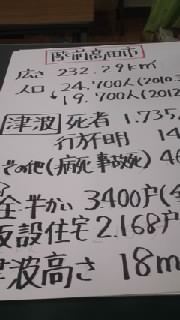 陸前高田市
広さ 232.29km
人口 24,700人(2010.
↓19,700人(2012
津波 死者 1.735.
行方不明 14
その他(病死 事故死) 46
全半かい 3400戸(全
仮設住宅 2.168戸
津波高さ 18m